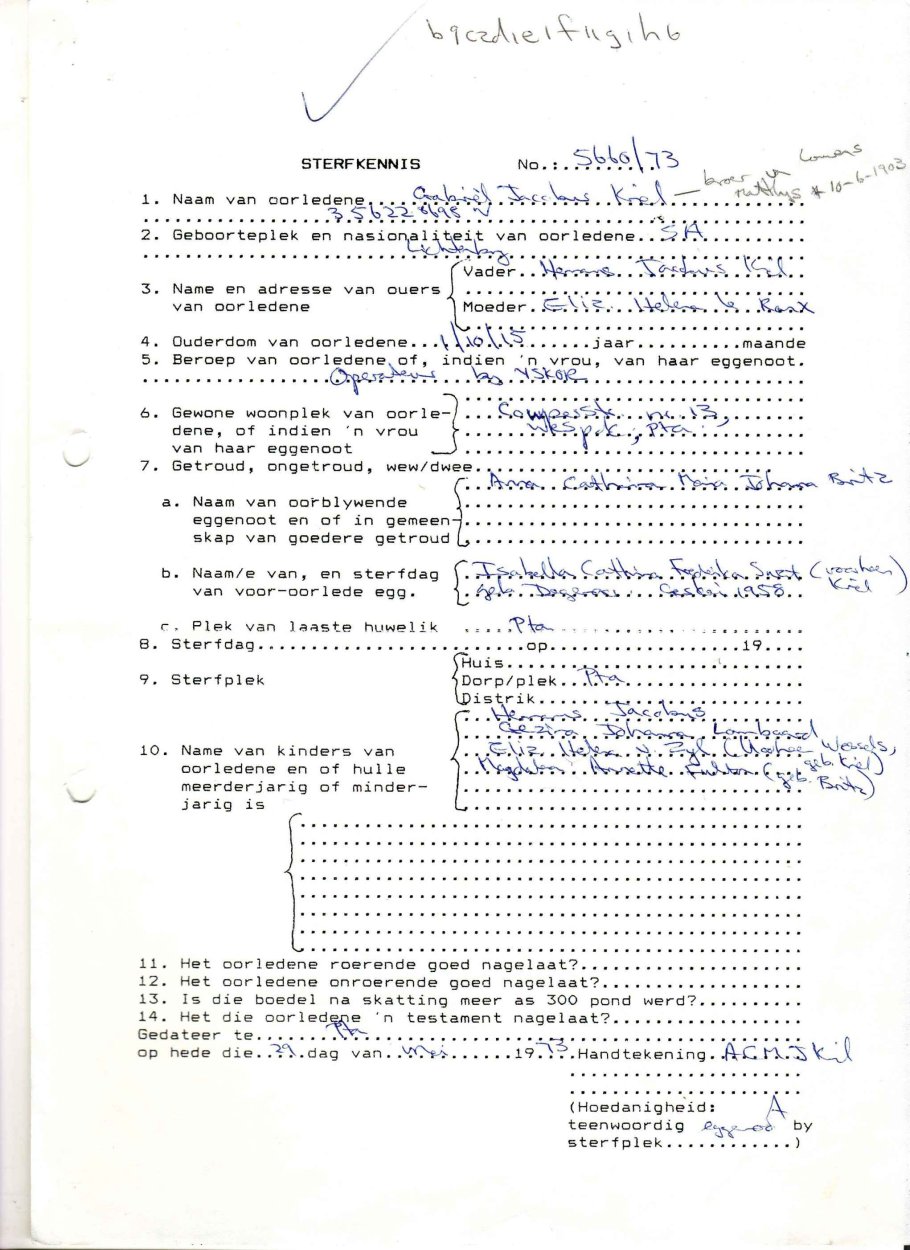 b9c2d1e1f11g1h6
STERFKENNIS No.:.5660/73
broer v Lourens
Matthys * 10-6-1903
1. Naam van oorledene...Gabriël Jacobus Kriel
2. Geboorteplek en nasionaliteit van oorledene..SA
Lichtenburg
Vader..Hermanus Jacobus Kriel
3. Name en adresse van ouers
van oorledene
Moeder..Eliz. Helena
4. Ouderdom van oorledene...1/10/15.......jaar..........maande
5. Beroep van oorledene of, indien 'n vrou, van haar eggenoot.
Operateur by YSKOR
6. Gewone woonplek van oorle- nr 13,
dene, of indien 'n vrou Wespk, Pta
van haar eggenoot
7. Getroud, ongetroud, wew/dwee
Anna Cathrina Maria Johanna Britz
a. Naam van oorblywende
eggenoot en of in gemeen-
skap van goedere getroud
b. Naam/e van, en sterfdag Isabella Cathrina Fredrika Smit (voorheen
van voor-oorlede egg. geb. 1958.. Kriel)
c. Plek van laaste huwelik .....Pta
8. Sterfdag.......................op....................19....
Huis
9. Sterfplek Dorp/plek...Pta
Distrik
Hermanus Jacobus
Gezina Johanna Lombaard
10. Name van kinders van Eliz. Helena v. Zyl (Voorheen Wessels,
geb. Kriel)
oorledene en of hulle Magdalena Annette Fulton (geb.
Britz)
meerderjarig of minder-
jarig is
11. Het oorledene roerende goed nagelaat?
12. Het oorledene onroerende goed nagelaat?
13. Is die boedel na skatting meer as 300 pond werd?
14. Het die oorledene 'n testament nagelaat?
Gedateer te.......Pta
op hede die..29.dag van..Mei......19.73.Handtekening.A C M J Kriel
(Hoedanigheid: A
teenwoordig eggenoot by
sterfplek............)